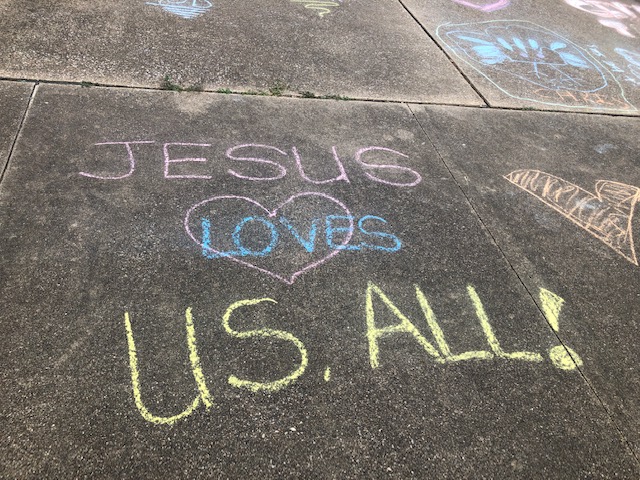 JESUS
LOVES
US, ALL!